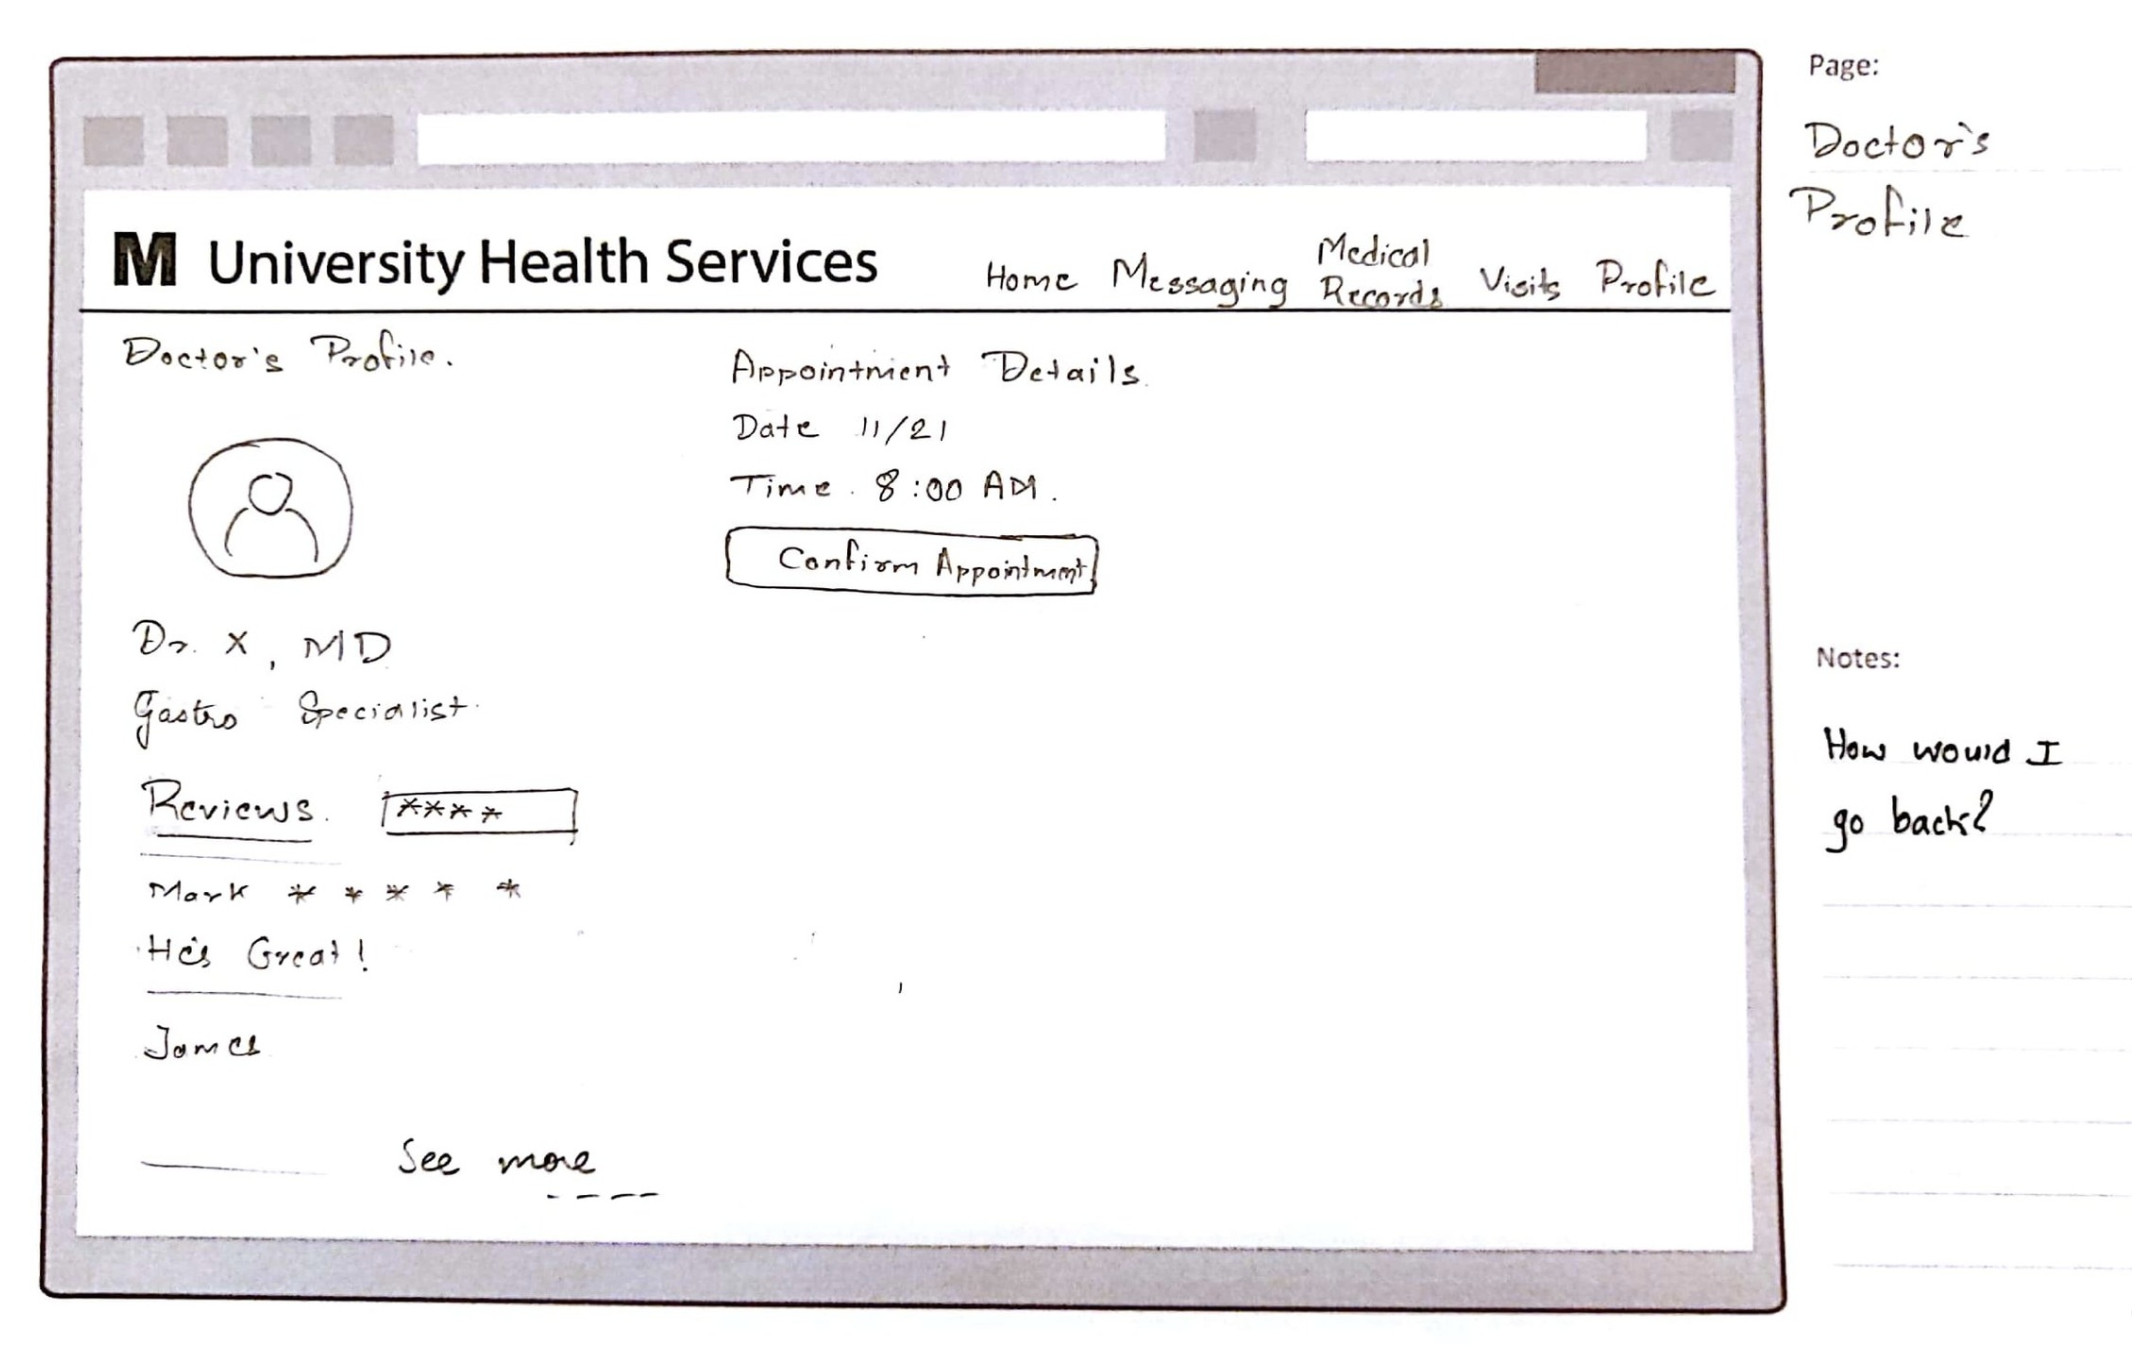 Page:
Doctor's
Profile
M University Health Services
Home Messaging Medical Records Visits Profile
Doctor's Profile.
Dr. X, MD
Gastro Specialist.
Reviews. ****
Mark * * * * *
He's Great!
James
See more
Appointment Details
Date 11/21
Time. 8:00 AM.
Confirm Appointment
Notes:
How would I
go back?